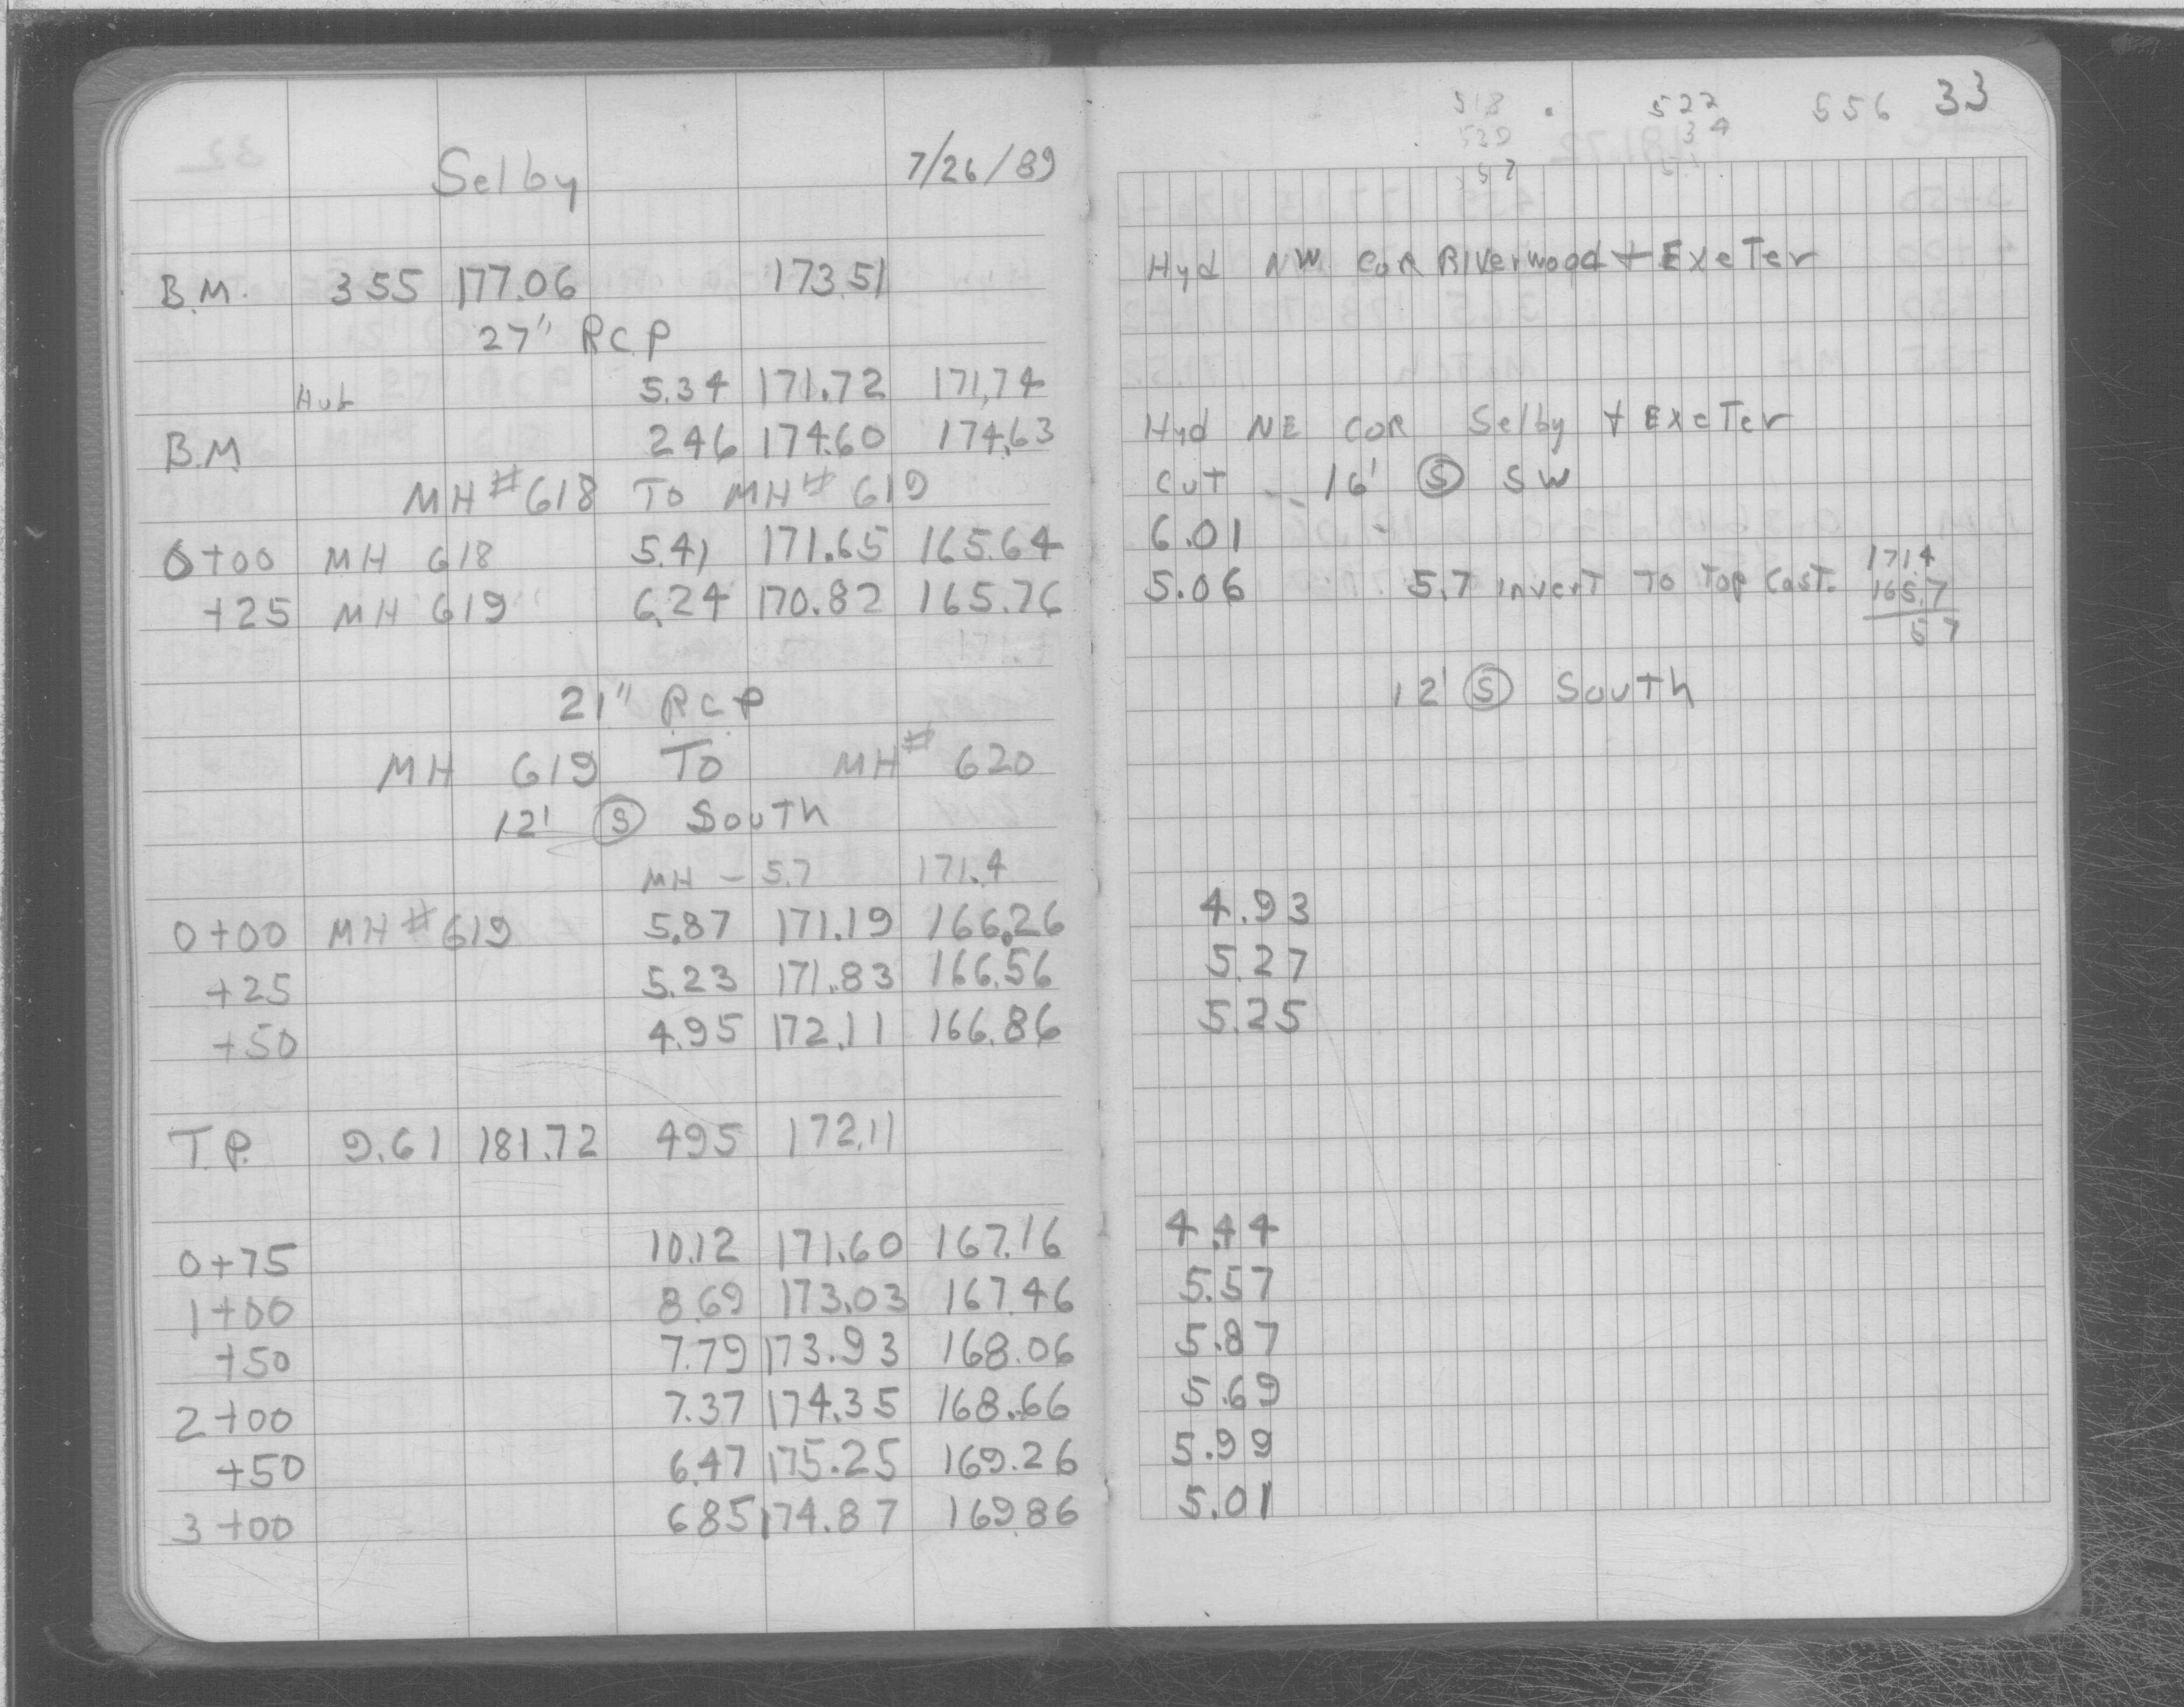 Selby 7/26/89
B.M. 3.55 177.06 173.51
27" RCP
Hub 5.34 171.72 171.74
B.M 2.46 174.60 174.63
MH #618 To MH# 619
0+00 MH 618 5.41 171.65 165.64
+25 MH 619 6.24 170.82 165.76
21" RCP
MH 619 To MH# 620
12' Ⓢ South
MH - 5.7 171.4
0+00 MH #619 5.87 171.19 166.26
+25 5.23 171.83 166.56
+50 4.95 172.11 166.86
T.P. 9.61 181.72 495 172.11
0+75 10.12 171.60 167.16
1+00 8.69 173.03 167.46
+50 7.79 173.93 168.06
2+00 7.37 174.35 168.66
+50 6.47 175.25 169.26
3+00 685 174.87 169.86
518 522 556 33
530 34
57
Hyd NW COR Riverwood + Exeter
Hyd NE COR Selby + Exeter
Cut - 16' Ⓢ SW
6.01
5.06 5.7 Invert To Top Cast.
171.4
165.7
5 7
12' Ⓢ South
4.93
5.27
5.25
4.44
5.57
5.87
5.69
5.99
5.01